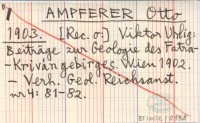 AMPFERER Otto
1903. [Rec. o:] Viktor Uhlig:
Beiträge zur Geologie des Fatra-
-Krivángebirges. Wien 1902.
- Verh. Geol. Reichsanst.
nr 4: 81-82.